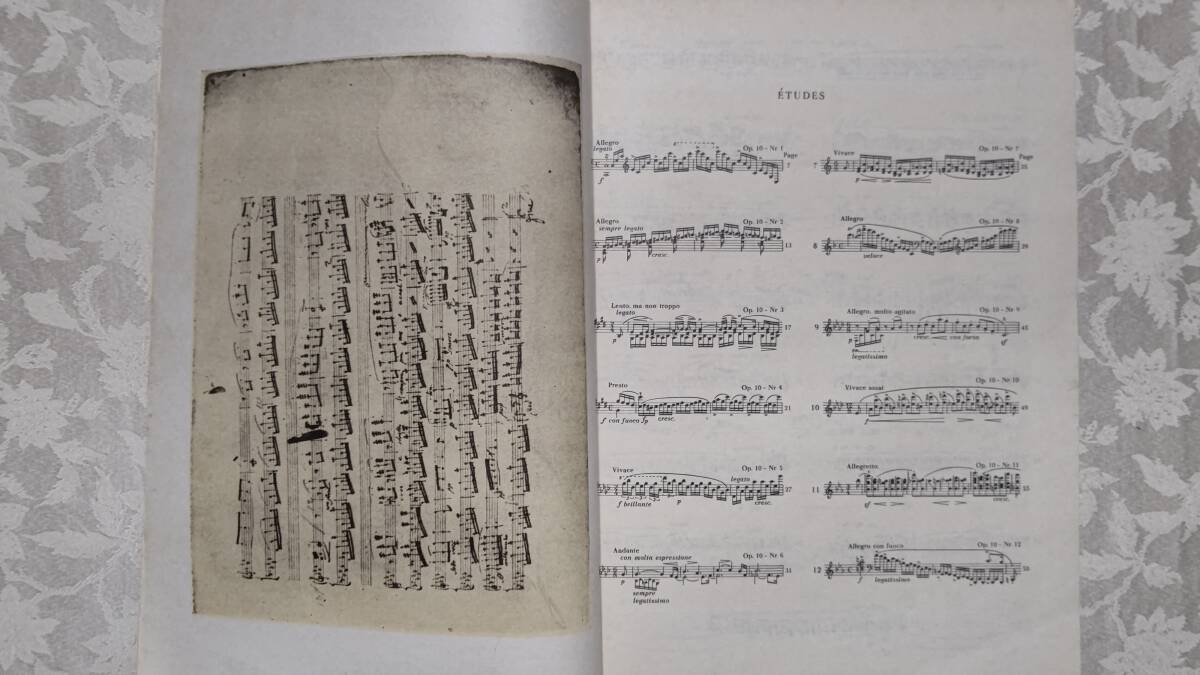 ÉTUDES
Allegro
legato
Op. 10 - Nr 1
Page
7
f
Allegro
sempre legato
Op. 10 - Nr 2
13
p
cresc.
Lento, ma non troppo
legato
Op. 10 - Nr 3
17
p
Presto
Op. 10 - Nr 4
21
f con fuoco fp
cresc.
Vivace
Op. 10 - Nr 5
legato
27
f brillante
p
cresc.
Andante
con molta espressione
Op. 10 - Nr 6
31
p
sempre
legatissimo
Vivace
Op. 10 - Nr 7
Page
7
35
p
Allegro
Op. 10 - Nr 8
8
veloce
Allegro, molto agitato
Op. 10 - Nr 9
9
45
p
cresc.
con forza
sf
legatissimo
Vivace assai
Op. 10 - Nr 10
10
49
Allegretto
Op. 10 - Nr 11
11
55
sf
cresc.
Allegro con fuoco
Op. 10 - Nr 12
12
f
legatissimo